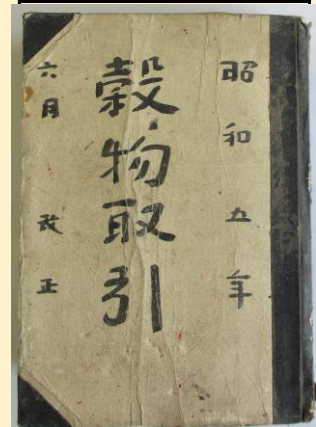 昭和五年
穀物取引
六月 改正